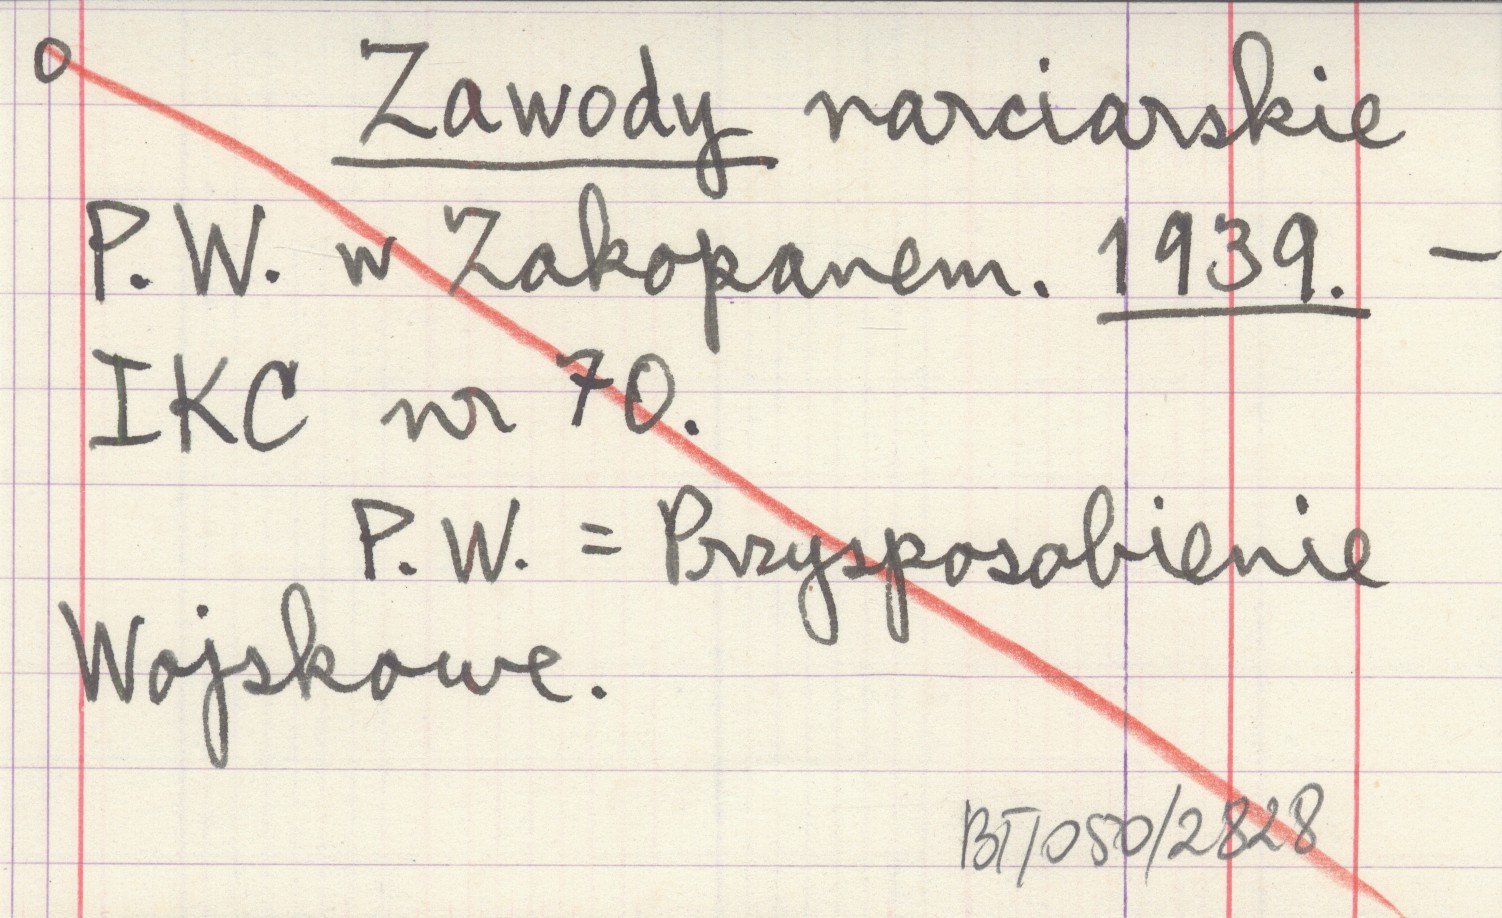 o Zawody narciarskie
P. W. w Zakopanem. 1939. –
IKC nr 70.
P. W. = Przysposobienie
Wojskowe.
BT/050/2828